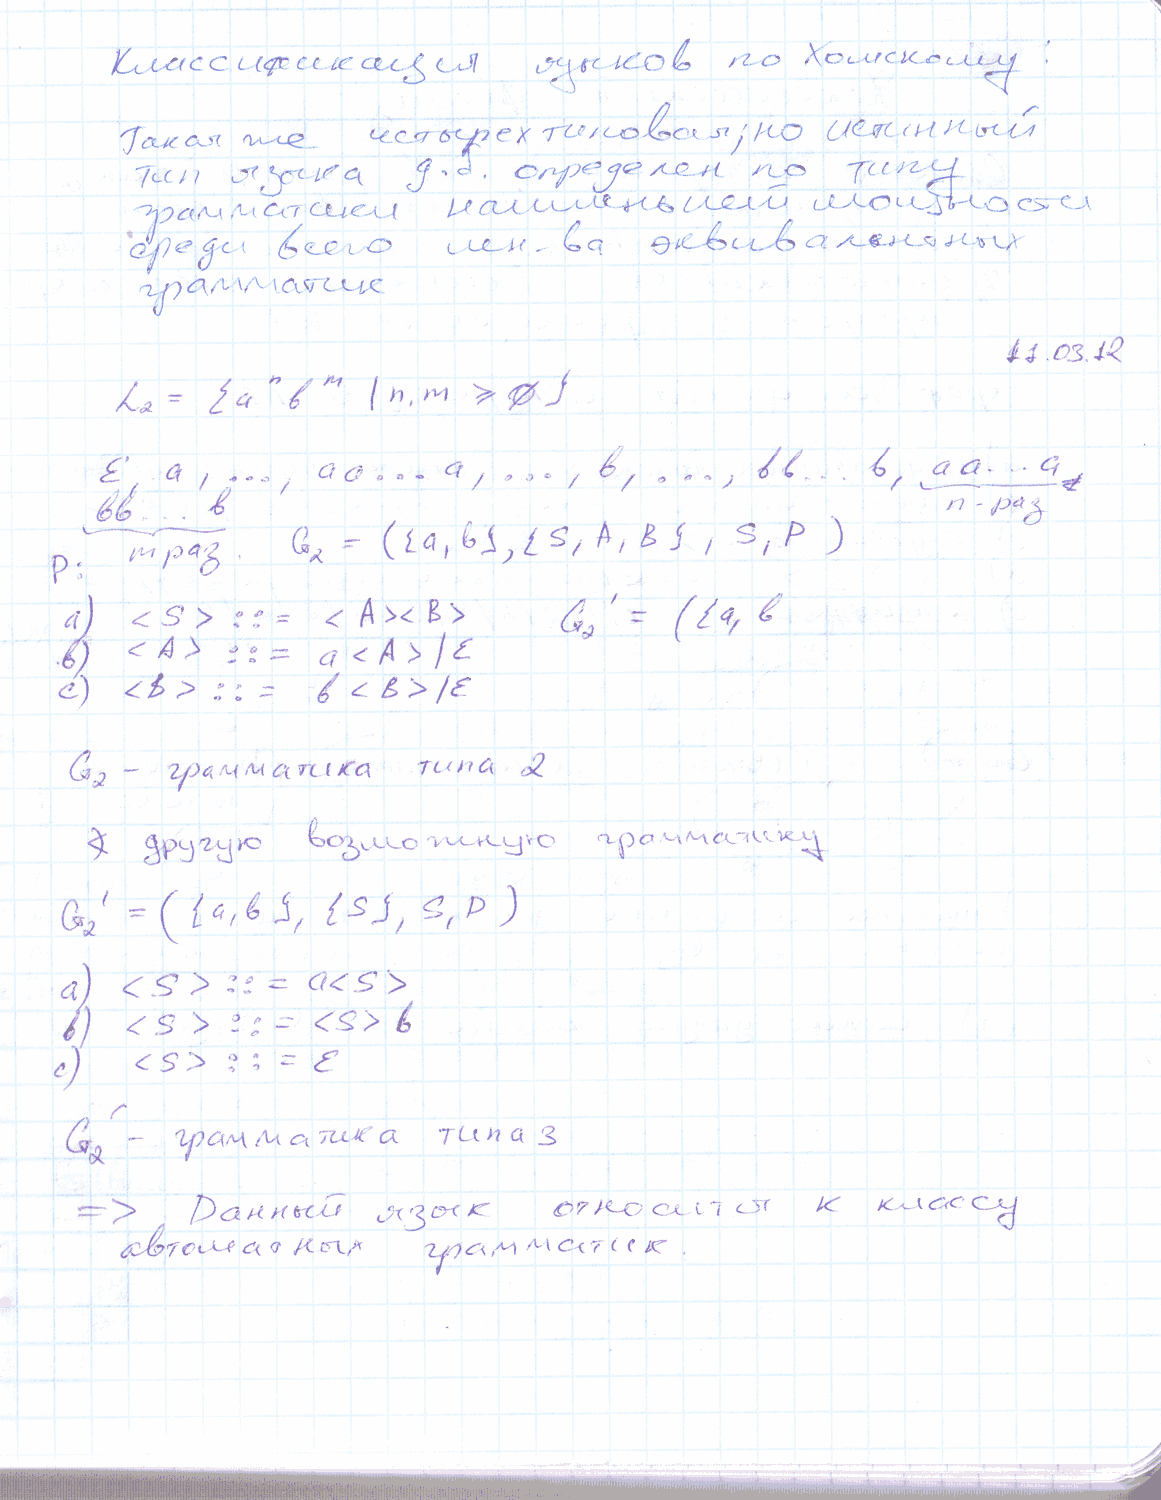 Классификация языков по Хомскому:
Такая же четырехтиповая, но истинный
тип языка д.б. определен по типу
грамматики наименьшей мощности
среди всего мн-ва эквивалентных
грамматик
11.03.12
L₂ = {aⁿ bᵐ | n, m ≥ ∅}
ε, a, ..., aa...a, ..., b, ..., bb...b, aa...a
n-раз
bb...b
m раз. G₂ = ({a, b}, {S, A, B}, S, P)
P:
a) <S> ::= <A><B> G₂' = ({a, b
b) <A> ::= a<A>/ε
c) <B> ::= b<B>/ε
G₂ - грамматика типа 2
другую возможную грамматику
G₂' = ({a, b}, {S}, S, P)
a) <S> ::= a<S>
b) <S> ::= <S>b
c) <S> ::= ε
G₂' - грамматика типа 3
=> Данный язык относится к классу
автоматных грамматик.